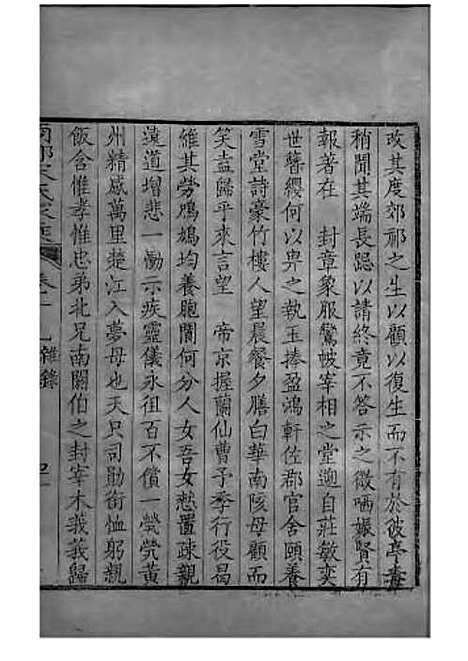 改其度郊祁之生以顧以復生而不有於彼亭毒
稍聞其端長跽以請終竟不答示之微哂嫄賢有
報著在　封章象服鸞帔宰相之堂迦自莊敏奕
世簪纓何以畁之執玉捧盈鴻軒佐郡官舍頤養
雪堂詩豪竹樓人望晨餐夕膳白華南陔母顧而
笑盍歸乎來言望　帝京握蘭仙曹予季行役曷
維其勞鳲鳩均養胞闔何分人女吾女愁置疎親
遠道增悲一慟示疾靈儀永徂百不償一煢煢黃
州精感萬里楚江入夢母也天只司勛銜恤躬親
飯含惟孝惟忠弟北兄南閼伯之封宰木莪莪歸
卷十一 雜錄